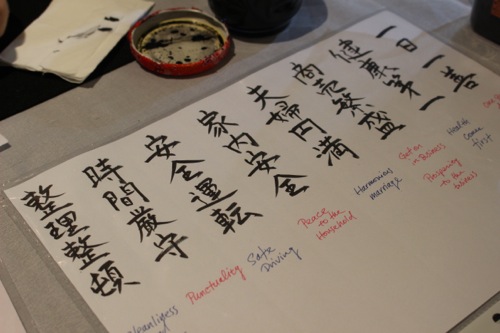 一日一善
健康第一
商売繁盛
夫婦円満
家内安全
安全運転
時間厳守
整理整頓
Health
come
first
in Business
Prosperity
to the
business
Harmonious
marriage
Peace
to the
Household
Safe
Driving
Punctuality
Cleanliness